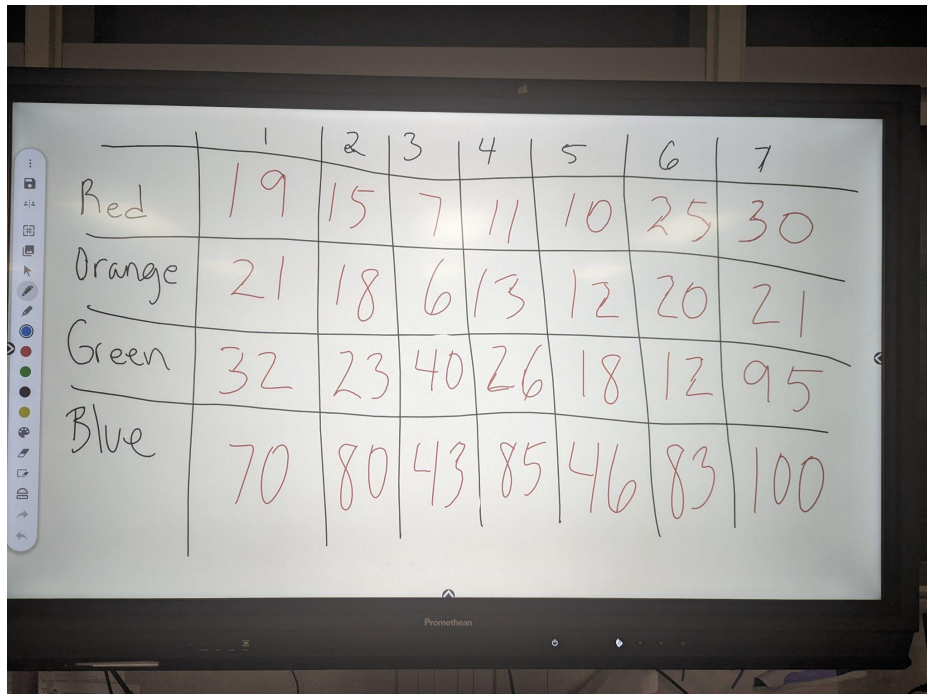 1 2 3 4 5 6 7
Red 19 15 7 11 10 25 30
Orange 21 18 6 13 12 20 21
Green 32 23 40 26 18 12 95
Blue 70 80 43 85 46 83 100
Promethean